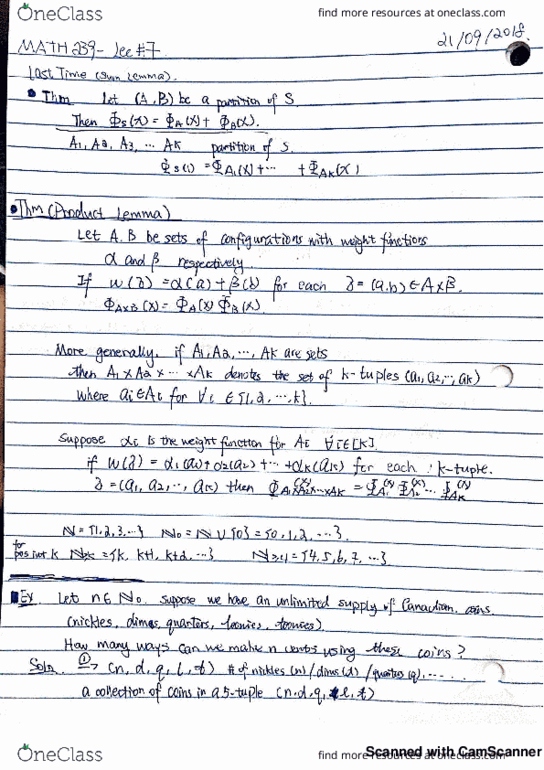 OneClass
find more resources at oneclass.com
21/09/2018.
MATH 239 - Lec #7
Last Time (Sum Lemma).
• Thm Let (A, B) be a partition of S
Then Φs(x) = ΦA(x) + ΦB(x).
A1, A2, A3, ... Ak partition of S.
Φs(x) = ΦA1(x) + ... + ΦAk(x)
• Thm (Product Lemma)
Let A, B be sets of configurations with weight functions
α and β respectively.
If w(δ) = α(a) + β(b) for each δ = (a,b) ∈ A×B.
ΦA×B(x) = ΦA(x) ΦB(x).
More generally, if A1, A2, ..., Ak are sets
then A1 × A2 × ... × Ak denotes the set of k-tuples (a1, a2, ..., ak)
where ai ∈ Ai for ∀i ∈ {1, 2, ..., k}.
Suppose αi is the weight function for Ai ∀i∈[k].
if w(δ) = α1(a1) + α2(a2) + ... + αk(ak) for each k-tuple.
δ = (a1, a2, ..., ak) then ΦA1×A2×...×Ak(x) = ΦA1(x) ΦA2(x) ... ΦAk(x)
N = {1, 2, 3, ...} N0 = N ∪ {0} = {0, 1, 2, ...}
for pos int k N≥k = {k, k+1, k+2, ...} N≥4 = {4, 5, 6, 7, ...}
Ex. Let n ∈ N0. suppose we have an unlimited supply of Canadian coins
(nickles, dimes, quarters, loonies, toonies)
How many ways can we make n cents using these coins?
Soln. ① → (n, d, q, l, t) # of nickles (n) / dimes (d) / quarters (q), ...
a collection of coins in a 5-tuple (n, d, q, l, t)
OneClass
find more resources at oneclass.com
Scanned with CamScanner